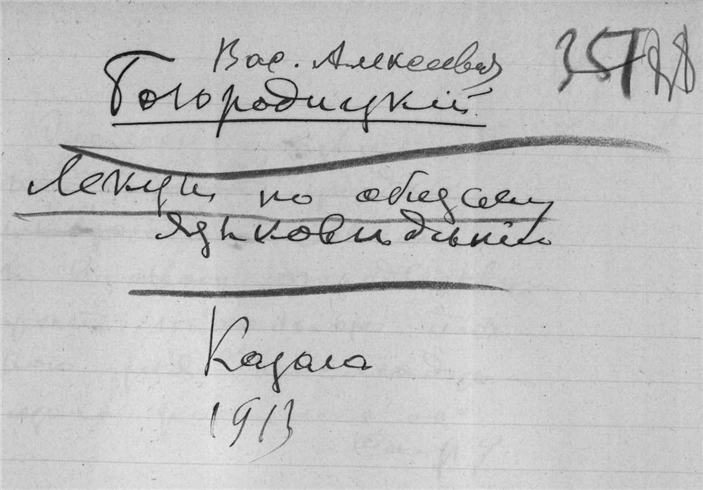 Вас. Алексеевич
Богородицкий.
Лекции по общему
языковидѣнію
Казань
1913